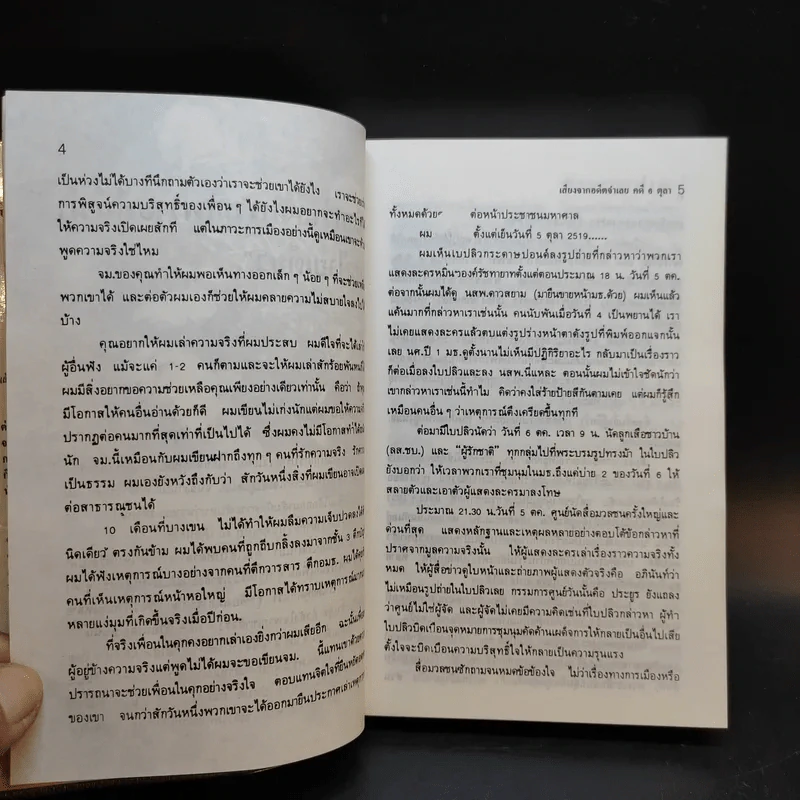 4
เป็นห่วงไม่ได้บางทีนึกถามตัวเองว่าเราจะช่วยเขาได้ยังไง เราจะช่วย
การพิสูจน์ความบริสุทธิ์ของเพื่อน ๆ ได้ยังไงผมอยากจะทำอะไร
ให้ความจริงเปิดเผยสักที แต่ในภาวะการเมืองอย่างนี้ดูเหมือนเขาจะ
พูดความจริงใช่ไหม
จม.ของคุณทำให้ผมพอเห็นทางออกเล็ก ๆ น้อย ๆ ที่จะช่วย
พวกเขาได้ และต่อตัวผมเองก็ช่วยให้ผมคลายความไม่สบายใจลง
บ้าง
คุณอยากให้ผมเล่าความจริงที่ผมประสบ ผมดีใจที่จะได้
ผู้อื่นฟัง แม้จะแค่ 1-2 คนก็ตามและจะให้ผมเล่าสักร้อยพัน
ผมมีสิ่งอยากขอความช่วยเหลือคุณเพียงอย่างเดียวเท่านั้น คือว่า
มีโอกาสให้คนอื่นอ่านด้วยก็ดี ผมเขียนไม่เก่งนักแต่ผมขอให้ความ
ปรากฏต่อคนมากที่สุดเท่าที่เป็นไปได้ ซึ่งผมคงไม่มีโอกาสทำได้
นัก จม.นี้เหมือนกับผมเขียนฝากถึงทุก ๆ คนที่รักความจริง รัก
เป็นธรรม ผมเองยังหวังถึงกับว่า สักวันหนึ่งสิ่งที่ผมเขียนอาจเปิด
ต่อสาธารณชนได้
10 เดือนที่บางเขน ไม่ได้ทำให้ผมลืมความเจ็บปวดลงได้
นิดเดียว ตรงกันข้าม ผมได้พบคนที่ถูกถีบกลิ้งลงมาจากชั้น 3 ตึก
ผมได้ฟังเหตุการณ์บางอย่างจากคนที่ตึกวารสาร ตึกอมธ. ผมได้
คนที่เห็นเหตุการณ์หน้าหอใหญ่ มีโอกาสได้ทราบเหตุการณ์
หลายแง่มุมที่เกิดขึ้นจริงเมื่อปีก่อน.
ที่จริงเพื่อนในคุกคงอยากเล่าเองยิ่งกว่าผมเสียอีก ฉะนั้น
ผู้อยู่ข้างความจริงแต่พูดไม่ได้ผมจะขอเขียนจม. นี้แทนเขาด้วย
ปรารถนาจะช่วยเพื่อนในคุกอย่างจริงใจ ตอบแทนจิตใจที่ยืนหยัด
ของเขา จนกว่าสักวันหนึ่งพวกเขาจะได้ออกมายืนประกาศเล่า
เสียงจากอดีตจำเลย คดี ๖ ตุลา 5
ทั้งหมดด้วย ต่อหน้าประชาชนมหาศาล
ผม ตั้งแต่เย็นวันที่ 5 ตุลา 2519......
ผมเห็นใบปลิวกระดาษปอนด์ลงรูปถ่ายที่กล่าวหาว่าพวกเรา
แสดงละครหมิ่นฯองค์รัชทายาทตั้งแต่ตอนประมาณ 18 น. วันที่ 5 ตค.
ต่อจากนั้นผมได้ดู นสพ.ดาวสยาม (มายืนขายหน้ามธ.ด้วย) ผมเห็นแล้ว
แค้นมากที่กล่าวหาเราเช่นนั้น คนนับพันเมื่อวันที่ 4 เป็นพยานได้ เรา
ไม่เคยแสดงละครแล้วตบแต่งรูปร่างหน้าตาดังรูปที่พิมพ์ออกแจกนั้น
เลย นศ.ปี 1 มธ.ดูตั้งนานไม่เห็นมีปฏิกิริยาอะไร กลับมาเป็นเรื่องราว
ก็ต่อเมื่อลงใบปลิวและลง นสพ.นี่แหละ ตอนนั้นผมไม่เข้าใจชัดนักว่า
เขากล่าวหาเราเช่นนี้ทำไม คิดว่าคงใส่ร้ายป้ายสีกันตามเคย แต่ผมก็รู้สึก
เหมือนคนอื่น ๆ ว่าเหตุการณ์ตึงเครียดขึ้นทุกที
ต่อมามีใบปลิวนัดว่า วันที่ 6 ตค. เวลา 9 น. นัดลูกเสือชาวบ้าน
(ลส.ชบ.) และ "ผู้รักชาติ" ทุกกลุ่มไปที่พระบรมรูปทรงม้า ในใบปลิว
ยังบอกว่า ให้เวลาพวกเราที่ชุมนุมในมธ.ถึงแค่บ่าย 2 ของวันที่ 6 ให้
สลายตัวและเอาตัวผู้แสดงละครมาลงโทษ
ประมาณ 21.30 น.วันที่ 5 ตค. ศูนย์นัดสื่อมวลชนครั้งใหญ่และ
ด่วนที่สุด แสดงหลักฐานและเหตุผลหลายอย่างตอบโต้ข้อกล่าวหาที่
ปราศจากมูลความจริงนั้น ให้ผู้แสดงละครเล่าเรื่องราวความจริงทั้ง
หมด ให้ผู้สื่อข่าวดูใบหน้าและถ่ายภาพผู้แสดงตัวจริงคือ อภินันท์ว่า
ไม่เหมือนรูปถ่ายในใบปลิวเลย กรรมการศูนย์วันนั้นคือ ประยูร ยังแถลง
ว่าศูนย์ไม่ใช่ผู้จัด และผู้จัดไม่เคยมีความคิดเช่นที่ใบปลิวกล่าวหา ผู้ทำ
ใบปลิวบิดเบือนจุดหมายการชุมนุมคัดค้านเผด็จการให้กลายเป็นอื่นไปเสีย
ตั้งใจจะบิดเบือนความบริสุทธิ์ใจให้กลายเป็นความรุนแรง
สื่อมวลชนซักถามจนหมดข้อข้องใจ ไม่ว่าเรื่องทางการเมืองหรือ